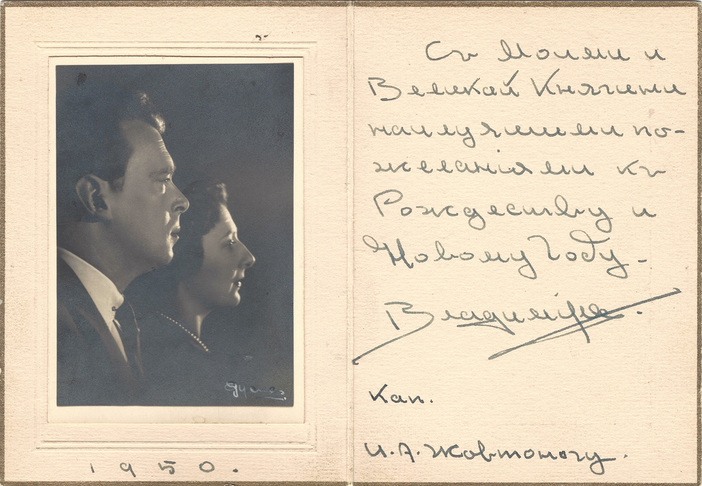 Съ Моими и
Великой Княгини
наилучшими по-
желанiями къ
Рождеству и
Новому Году.
Владимiръ.
Кап.
И. А. Жовтоногу.
1950.